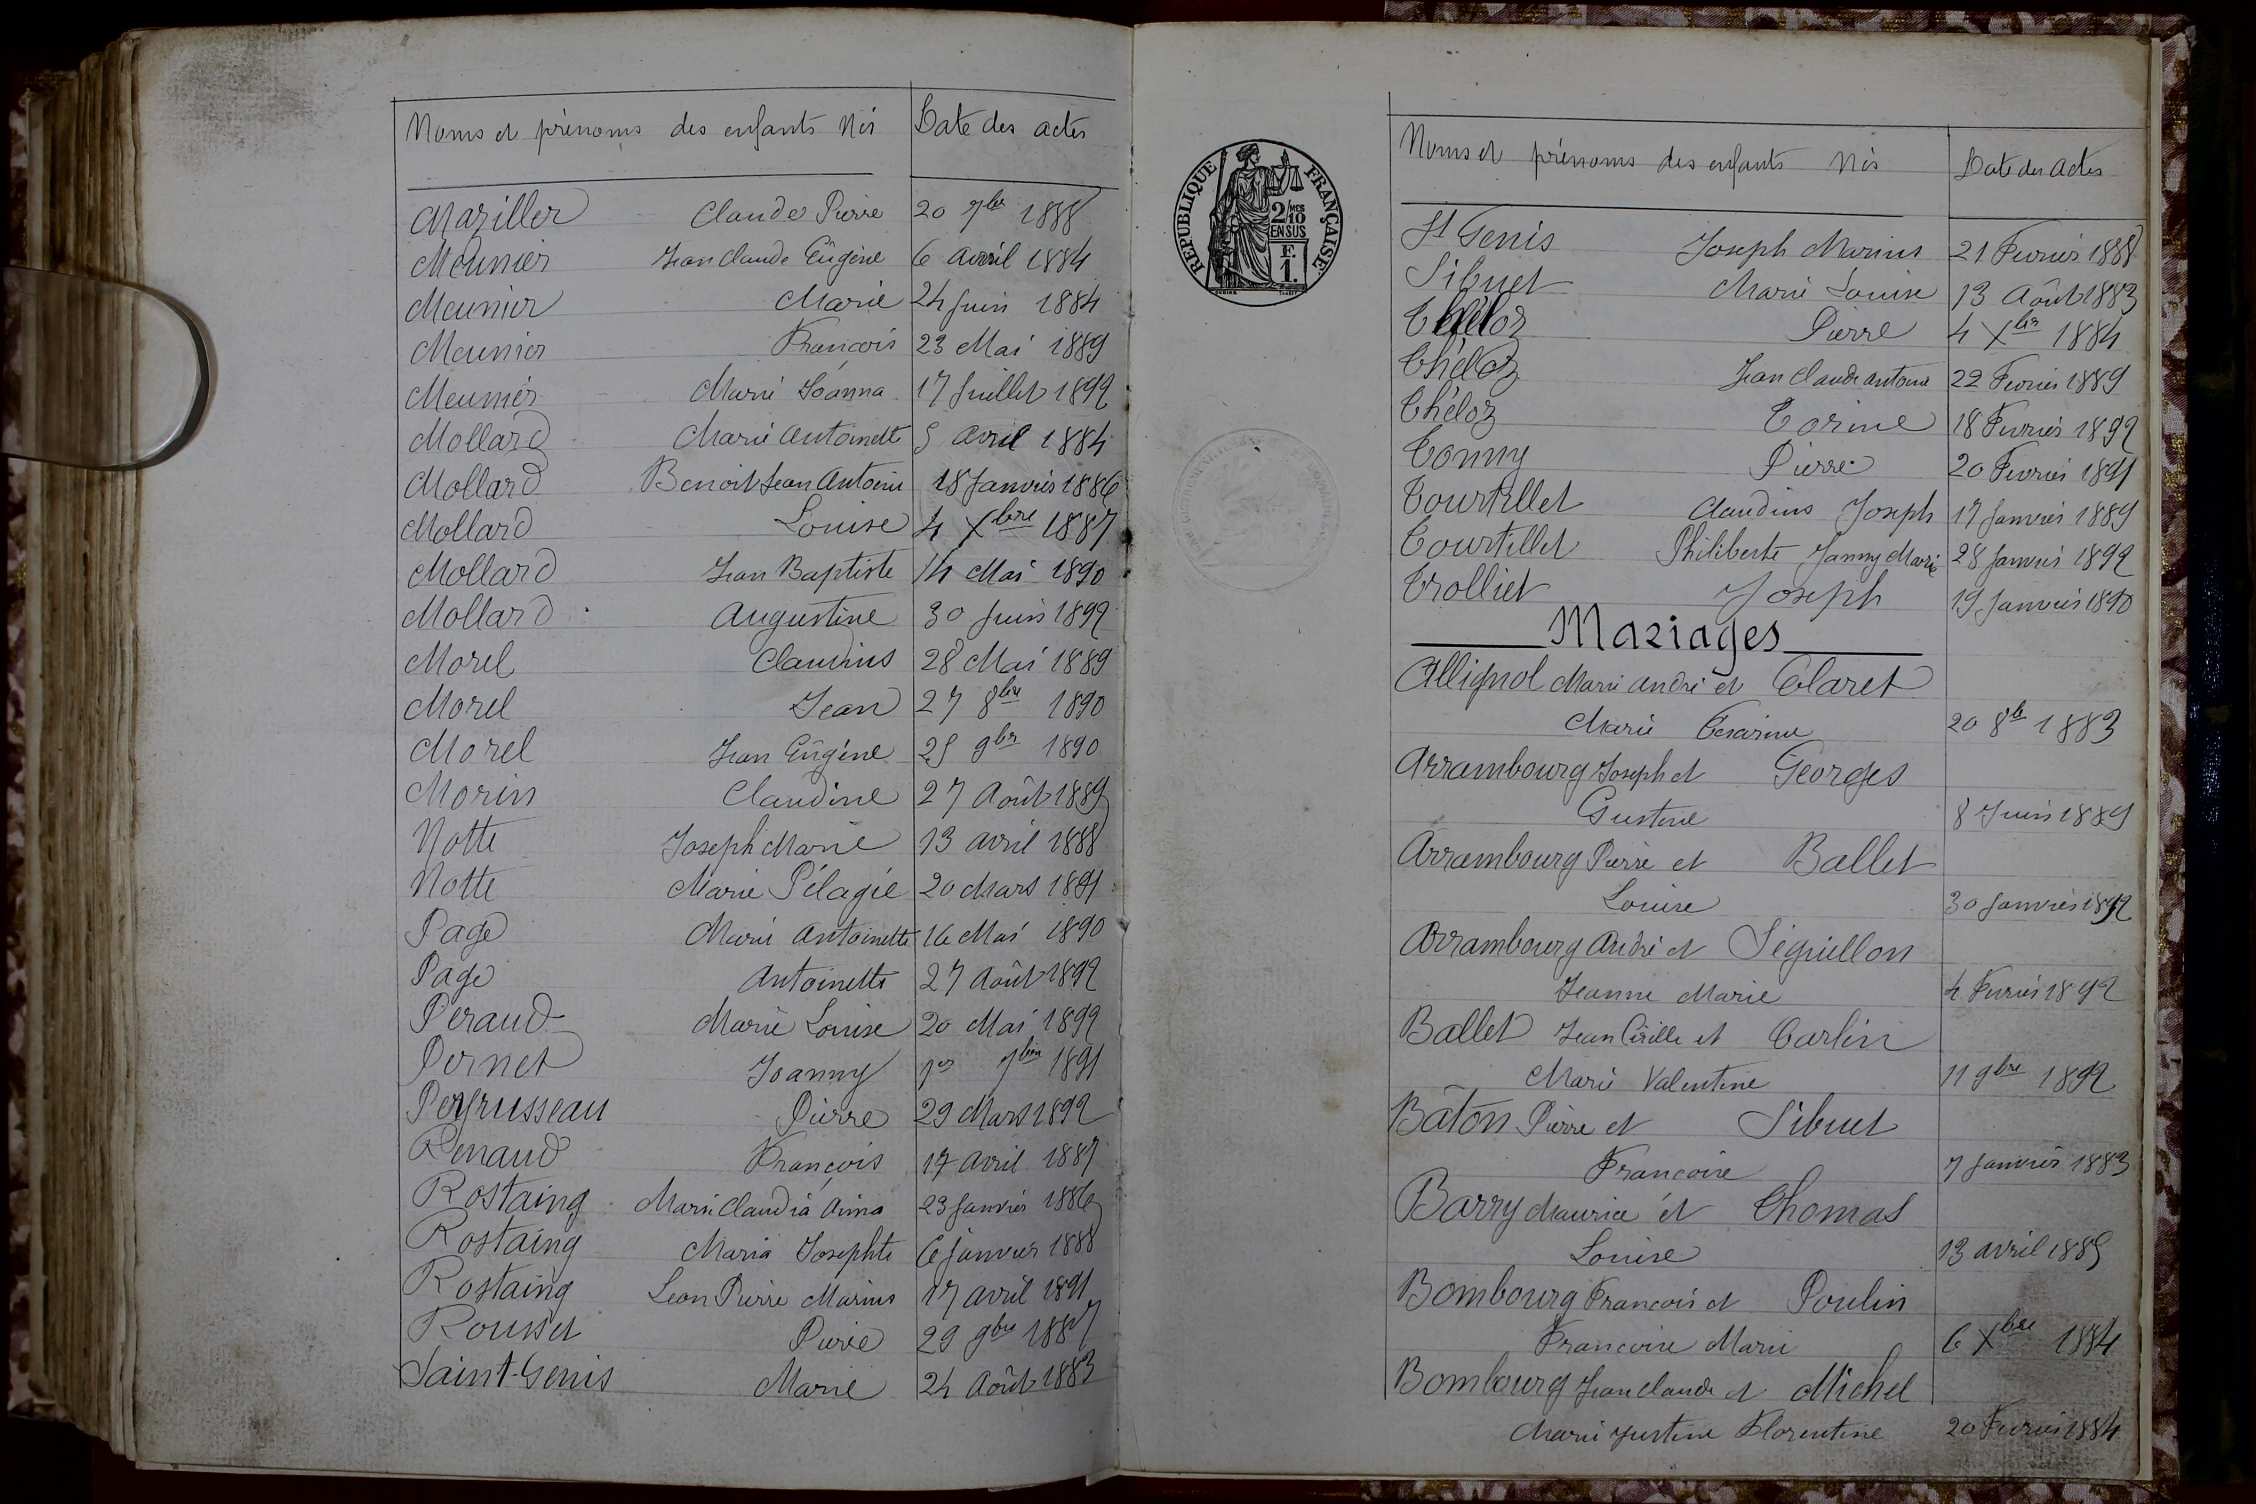 Noms et prénoms des enfants Nés Date des actes
Maziller Claude Pierre 20 7bre 1888
Meunier Jean Claude Eugène 6 avril 1884
Meunier Marie 24 Juin 1884
Meunier François 23 Mai 1889
Meunier Marie Joanna 17 Juillet 1892
Mollard Marie Antoinette 5 avril 1884
Mollard Benoit Jean Antoine 18 Janvier 1886
Mollard Louise 4 Xbre 1887
Mollard Jean Baptiste 14 Mai 1890
Mollard Augustine 30 Juin 1892
Morel Claudius 28 Mai 1889
Morel Jean 27 8bre 1890
Morel Jean Eugène 25 9bre 1890
Morin Claudine 27 Août 1889
Notte Joseph Marie 13 avril 1888
Notte Marie Pélagie 20 Mars 1891
Page Marie Antoinette 16 Mai 1890
Page Antoinette 27 Août 1892
Peraud Marie Louise 20 Mai 1892
Pernet Joanny 1er 7bre 1891
Peyrusseau Pierre 29 Mars 1892
Renaud François 17 avril 1887
Rostaing Marie Claudia 23 Janvier 1886
Rostaing Maria Josephte 6 Janvier 1888
Rostaing Leon Pierre Marius 17 avril 1891
Rousset Pierre 29 9bre 1887
Saint-Genis Marie 24 Août 1883
REPUBLIQUE FRANÇAISE
2/10 MES
EN SUS
F.
1.
Noms et prénoms des enfants Nés Date des actes
St Genis Joseph Marius 21 Fevrier 1888
Sibuet Marie Louise 13 Août 1883
Théloz Pierre 4 Xbre 1884
Théloz Jean Claude Antoine 22 Fevrier 1889
Théloz Corine 18 Fevrier 1892
Tonny Pierre 20 Fevrier 1891
Tourtillet Claudius Joseph 17 Janvier 1889
Tourtillet Philiberte Janny Marie 28 Janvier 1892
Trolliet Joseph 19 Janvier 1890
Mariages
Allignol Marie André et Claret
Marie Césarine 20 8bre 1883
Arrambourg Joseph et Georges
Gustine 8 Juin 1889
Arrambourg Pierre et Ballet
Louise 30 Janvier 1892
Arrambourg André et Séguillon
Jeanne Marie 4 Fevrier 1892
Ballet Jean Cirille et Carlin
Marie Valentine 11 9bre 1892
Bâton Pierre et Sibuet
Francoise 7 Janvier 1883
Barry Maurice et Thomas
Louise 13 avril 1885
Bombourg François et Poulin
Francoise Marie 6 Xbre 1884
Bombourg Jean Claude et Michel
Marie Justine Florentine 20 Fevrier 1884